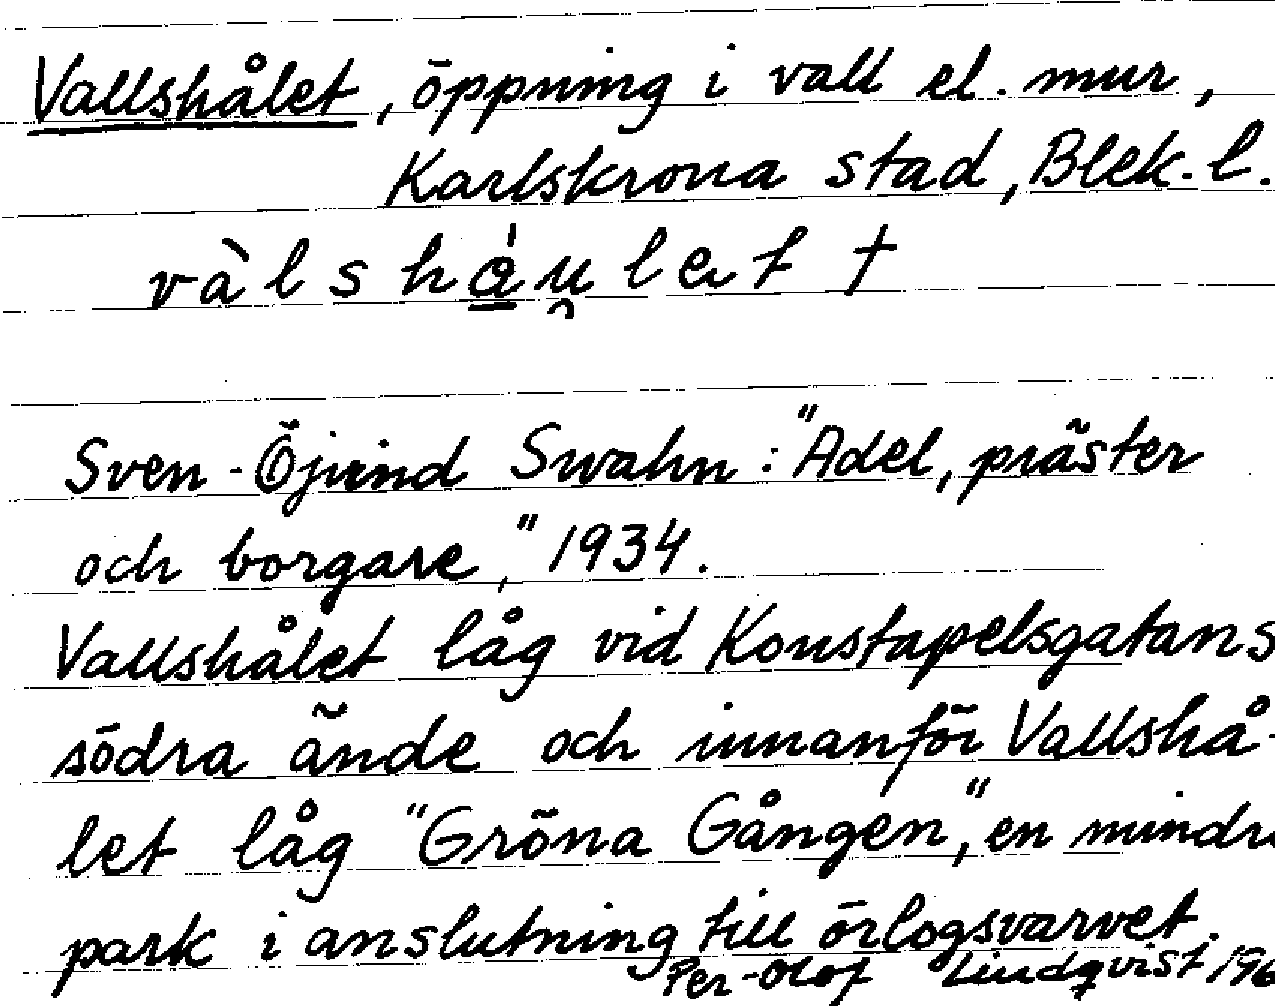 Vallshålet, öppning i vall el. mur,
Karlskrona stad, Blek. l.
vàlshá̱u̯let †
Sven-Öjvind Swahn: "Adel, präster
och borgare," 1934.
Vallshålet låg vid Konstapelsgatans
södra ände och innanför Vallshå-
let låg "Gröna Gången," en mindre
park i anslutning till örlogsvarvet.
Per-Olof Lindqvist 196